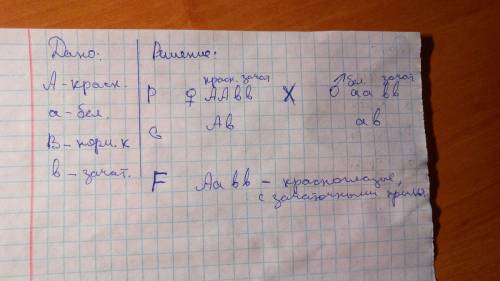 Дано: Решение:
красн. зачат. бел. зачат.
А - красн. P ♀ ААвв X ♂ аавв
а - бел. G Ав ав
В - норм. к
в - зачат.
F Аавв - красноглазые,
с зачаточными крыльями